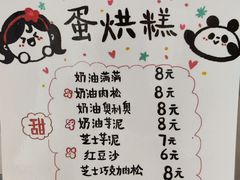 蛋烘糕
奶油满满 8元
奶油肉松 8元
奶油奥利奥 8元
奶油芋泥 8元
芝士芋泥 7元
红豆沙 6元
芝士巧克力肉松 8元
甜